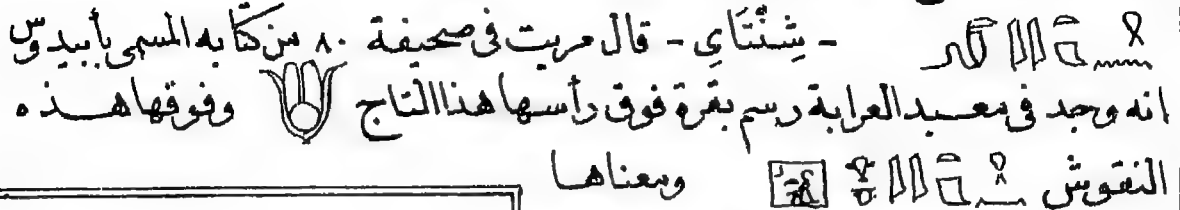 - شِنْتَايِ - قال مريت فى صحيفة ٨٠ من كتابه المسمى بأبيدوس
انه وجد فى معبد العرابة رسم بقرة فوق رأسها هذا التاج وفوقها هذه
النقوش ومعناها